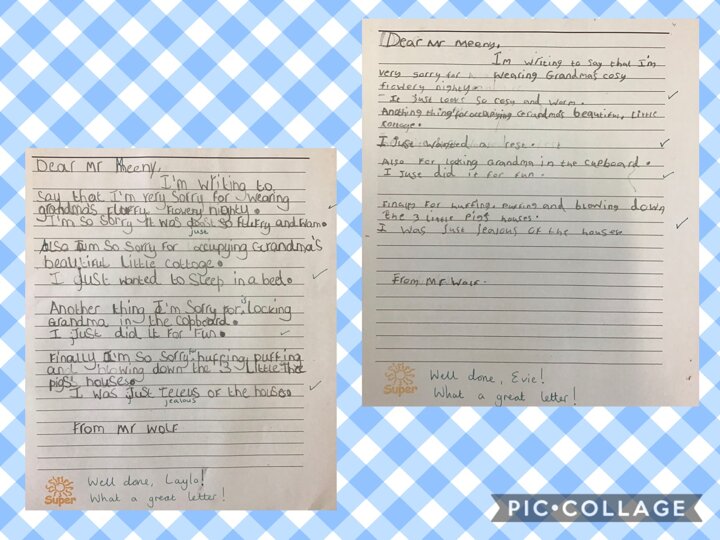 Dear Mr Meeny,
I'm writing to
say that I'm very sorry for wearing
grandma's fluffy flowery nighty.
I'm so sorry it was just so fluffy and warm.
just
Also I'm so sorry for occupying Grandma's
beautiful little cottage.
I just wanted to sleep in a bed.
Another thing I'm sorry for is locking
Grandma in the copboard.
I just did it for fun.
Finally I'm so sorry for huffing puffing
and blowing down the 3 little the
pigs houses.
I was just jeleus of the houses.
jealous
From Mr Wolf
Super
Well done, Layla!
What a great letter!
Dear Mr Meeny,
I'm writing to say that I'm
very sorry for wearing Grandmas cosy
flowery nighty.
It just looks so cosy and warm.
Anothing thing for occupying Grandma's beautiful, little
cottage.
I just wanted a rest.
Also for locking grandma in the cupboard.
I just did it for fun.
Finally for huffing, puffing and blowing down
the 3 little pigs houses.
I was just jealous of the houses
From Mr Wolf.
Super
Well done, Evie!
What a great letter!
PIC•COLLAGE